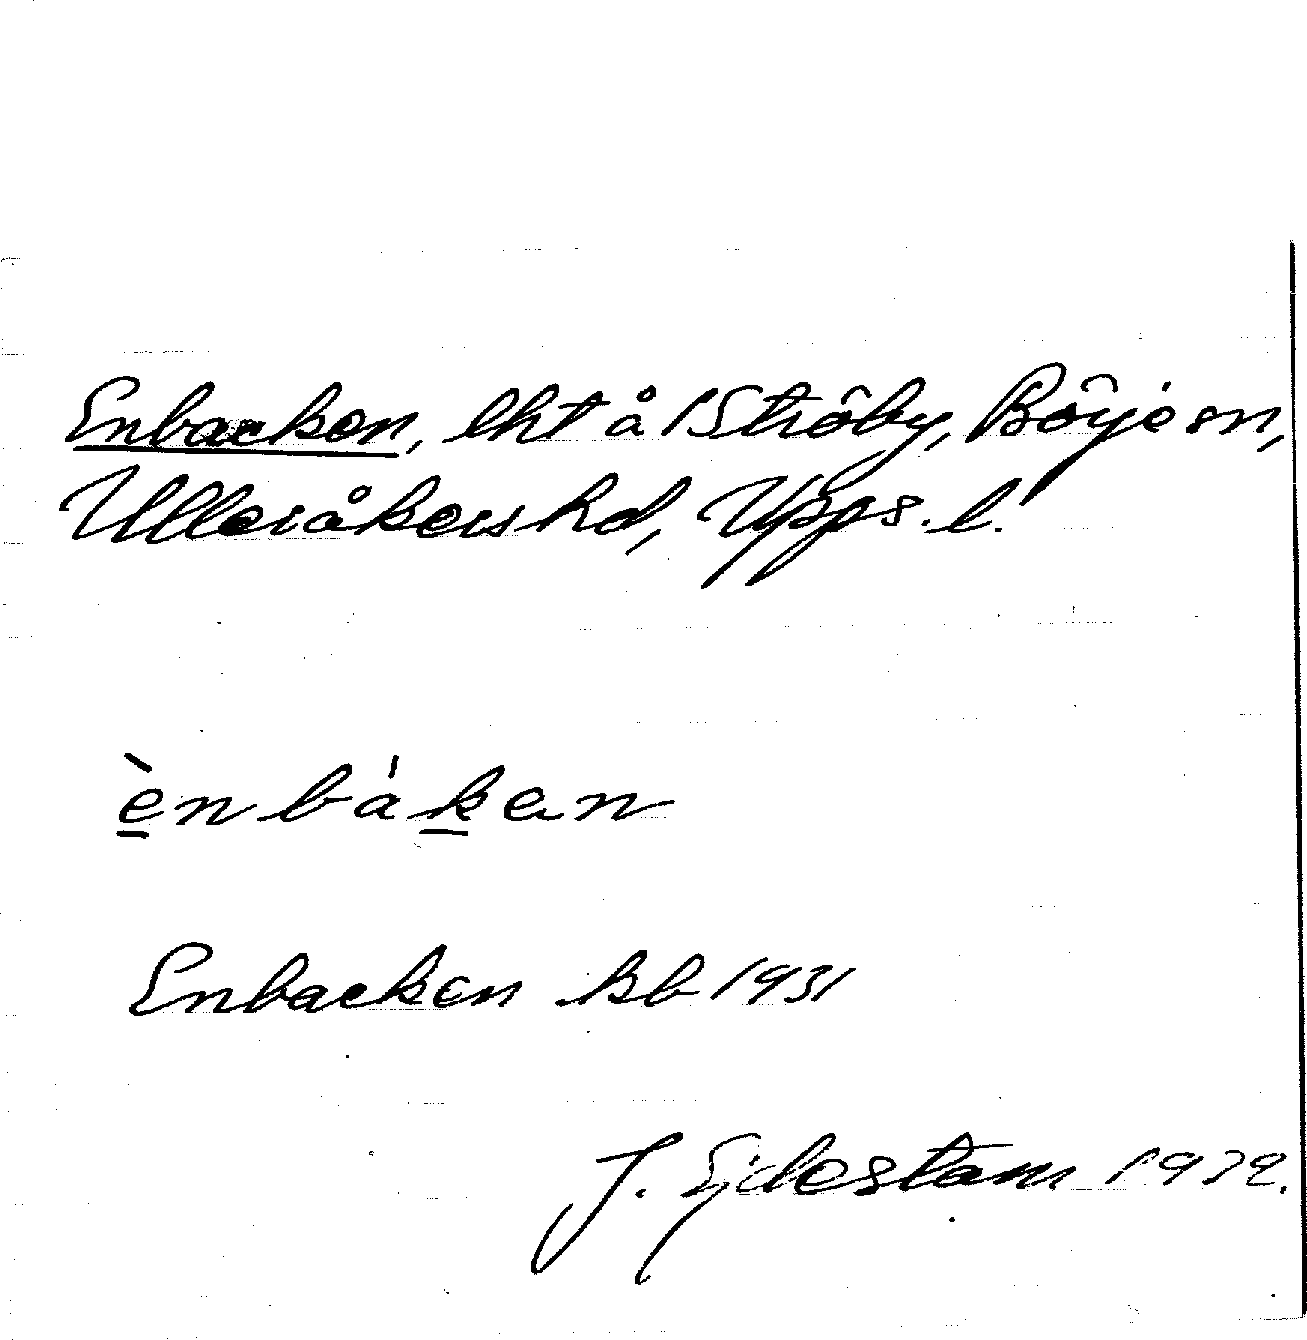 Enbacken, lht å 1 Ströby, Börje sn,
Ulleråkers hd, Upps. l.
ènbákan
Enbacken kb 1931
J. Ejdestam 1932.